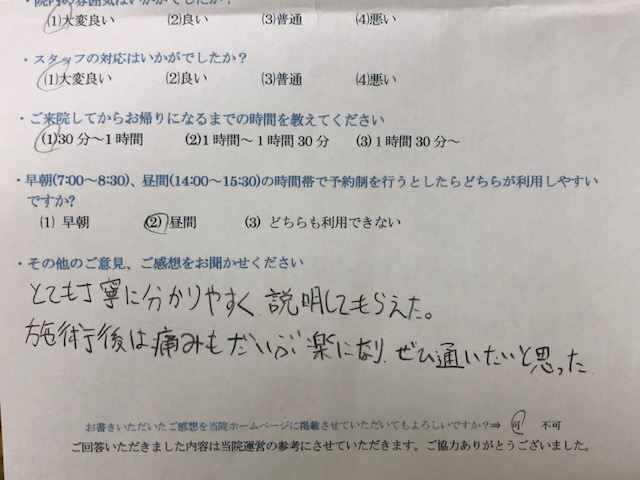 ・院内の雰囲気はいかがでしたか？
(1)大変良い (2)良い (3)普通 (4)悪い
・スタッフの対応はいかがでしたか？
(1)大変良い (2)良い (3)普通 (4)悪い
・ご来院してからお帰りになるまでの時間を教えてください
(1)30分～1時間 (2)1時間～1時間30分 (3)1時間30分～
・早朝(7:00～8:30)、昼間(14:00～15:30)の時間帯で予約制を行うとしたらどちらが利用しやすい
ですか?
(1) 早朝 (2) 昼間 (3) どちらも利用できない
・その他のご意見、ご感想をお聞かせください
とても丁寧に分かりやすく説明してもらえた。
施術後は痛みもだいぶ楽になり、ぜひ通いたいと思った
お書きいただいたご感想を当院ホームページに掲載させていただいてもよろしいですか？⇒ 可 不可
ご回答いただきました内容は当院運営の参考にさせていただきます。ご協力ありがとうございました。